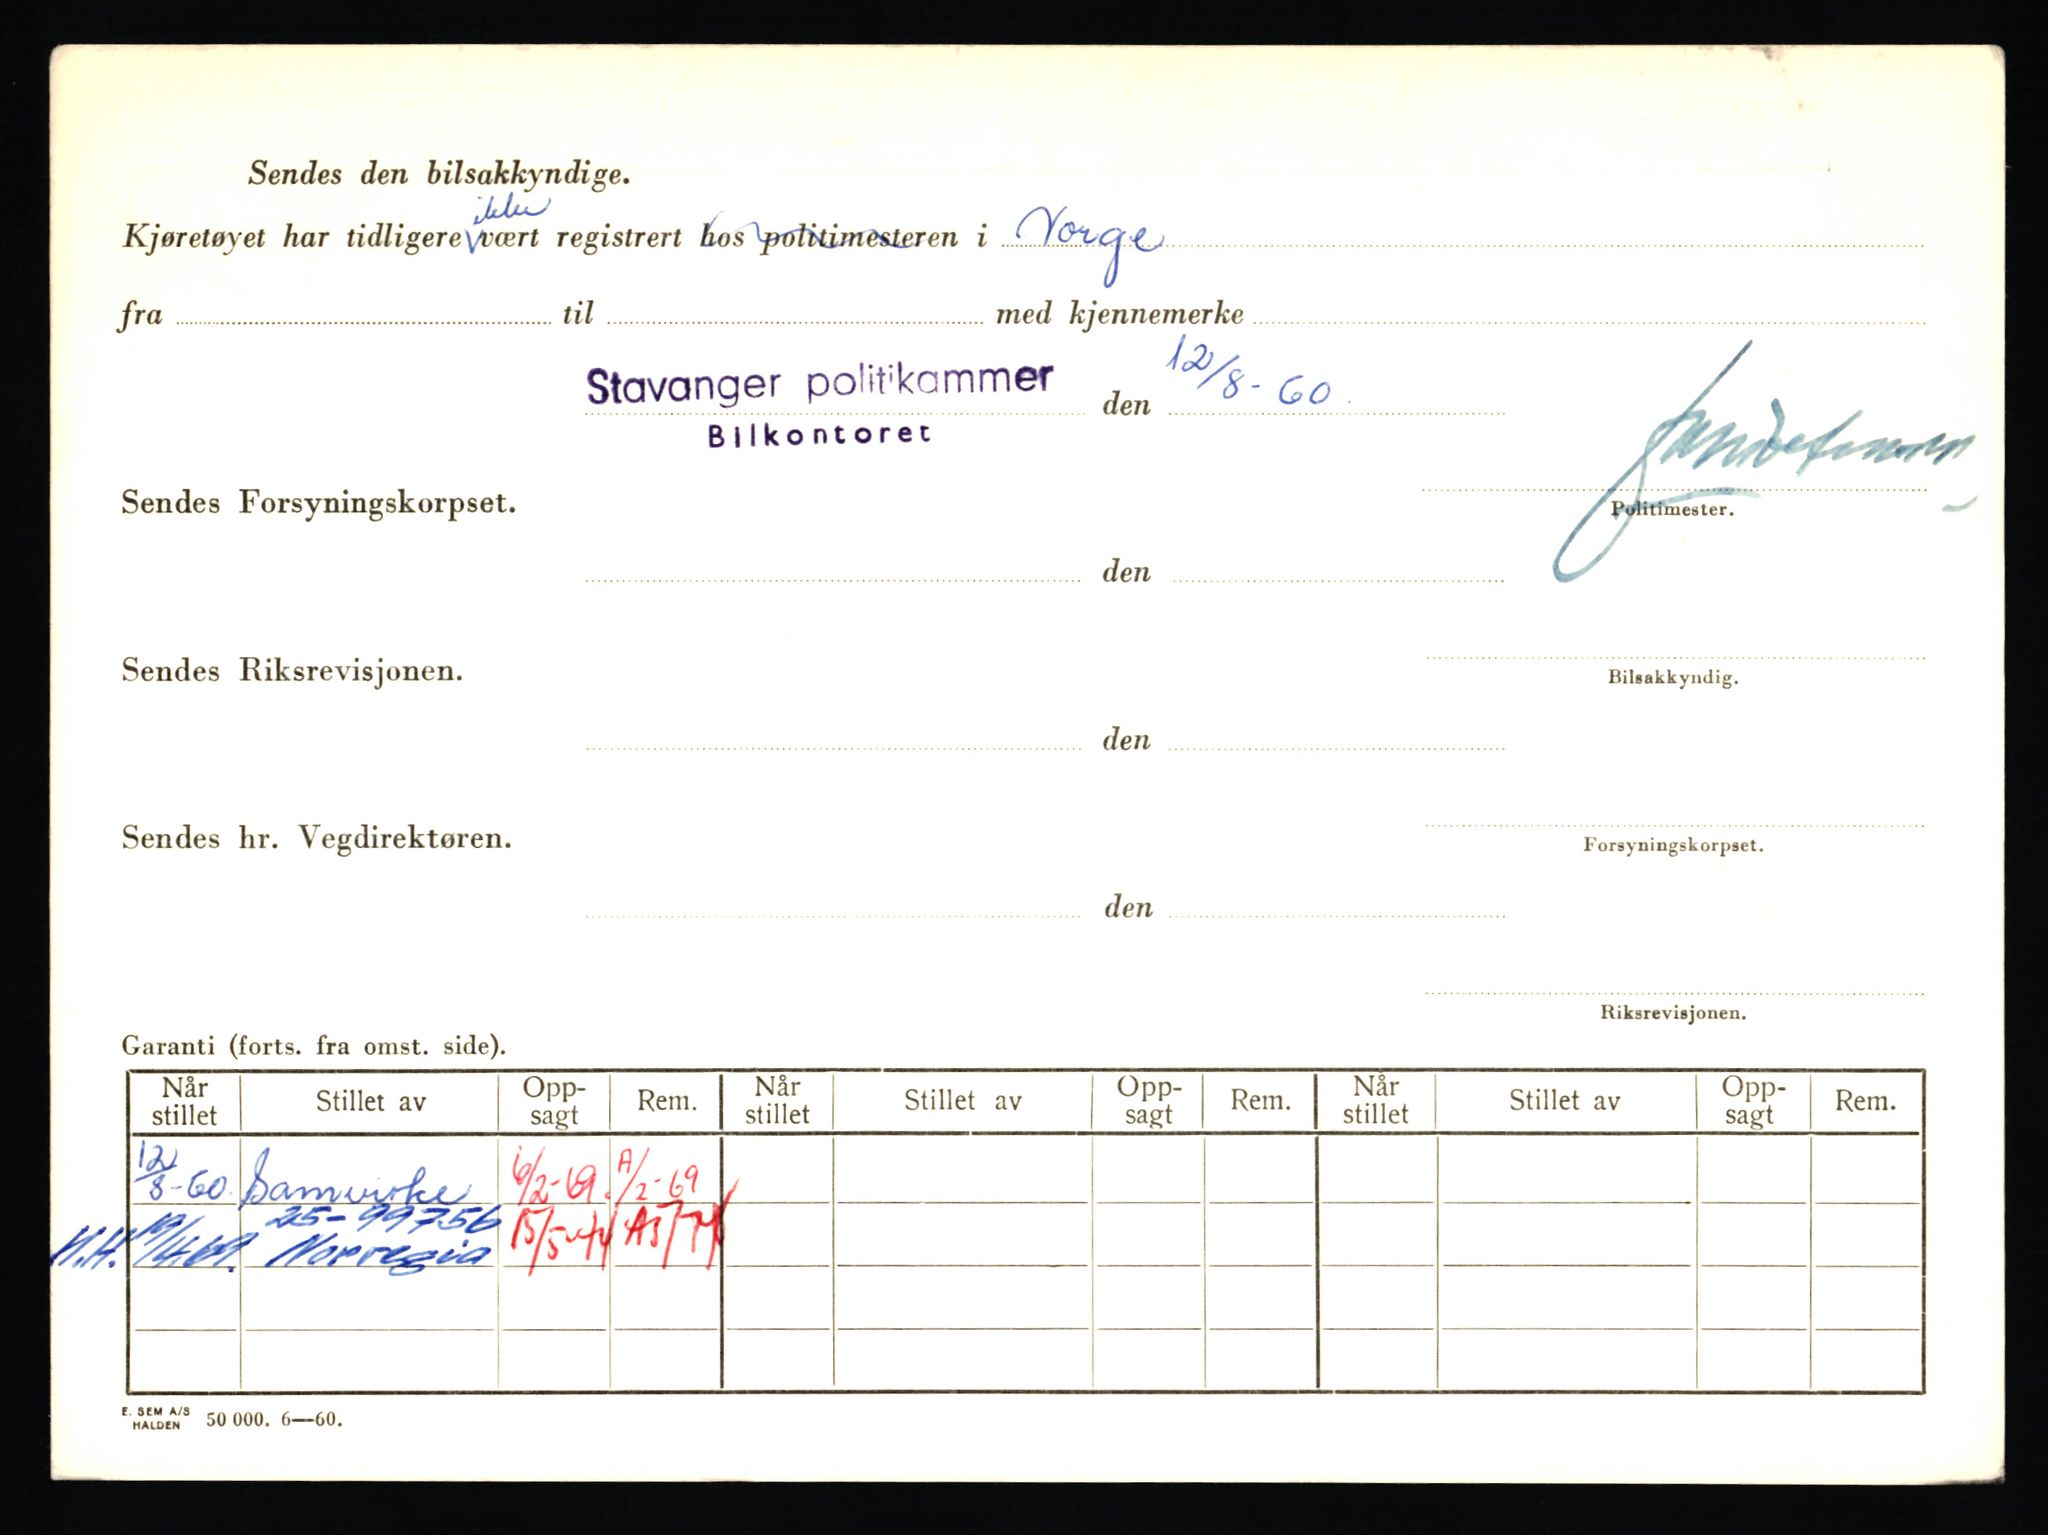 Sendes den bilsakkyndige.
ikke
Kjøretøyet har tidligere vært registrert hos politimesteren i Norge
fra til med kjennemerke
Stavanger politikammer den 12/8-60
Bilkontoret
Sendes Forsyningskorpset.
Politimester.
den
Sendes Riksrevisjonen.
Bilsakkyndig.
den
Sendes hr. Vegdirektøren.
Forsyningskorpset.
den
Riksrevisjonen.
Garanti (forts. fra omst. side).
Når stillet Stillet av Opp-sagt Rem. Når stillet Stillet av Opp-sagt Rem. Når stillet Stillet av Opp-sagt Rem.
12/8-60 Samvirke 6/2-69. A/2-69
25-99756
H.H. 19/4.69. Norvegia 15/5-74 A5/74
E. SEM A/S
HALDEN 50 000. 6—60.